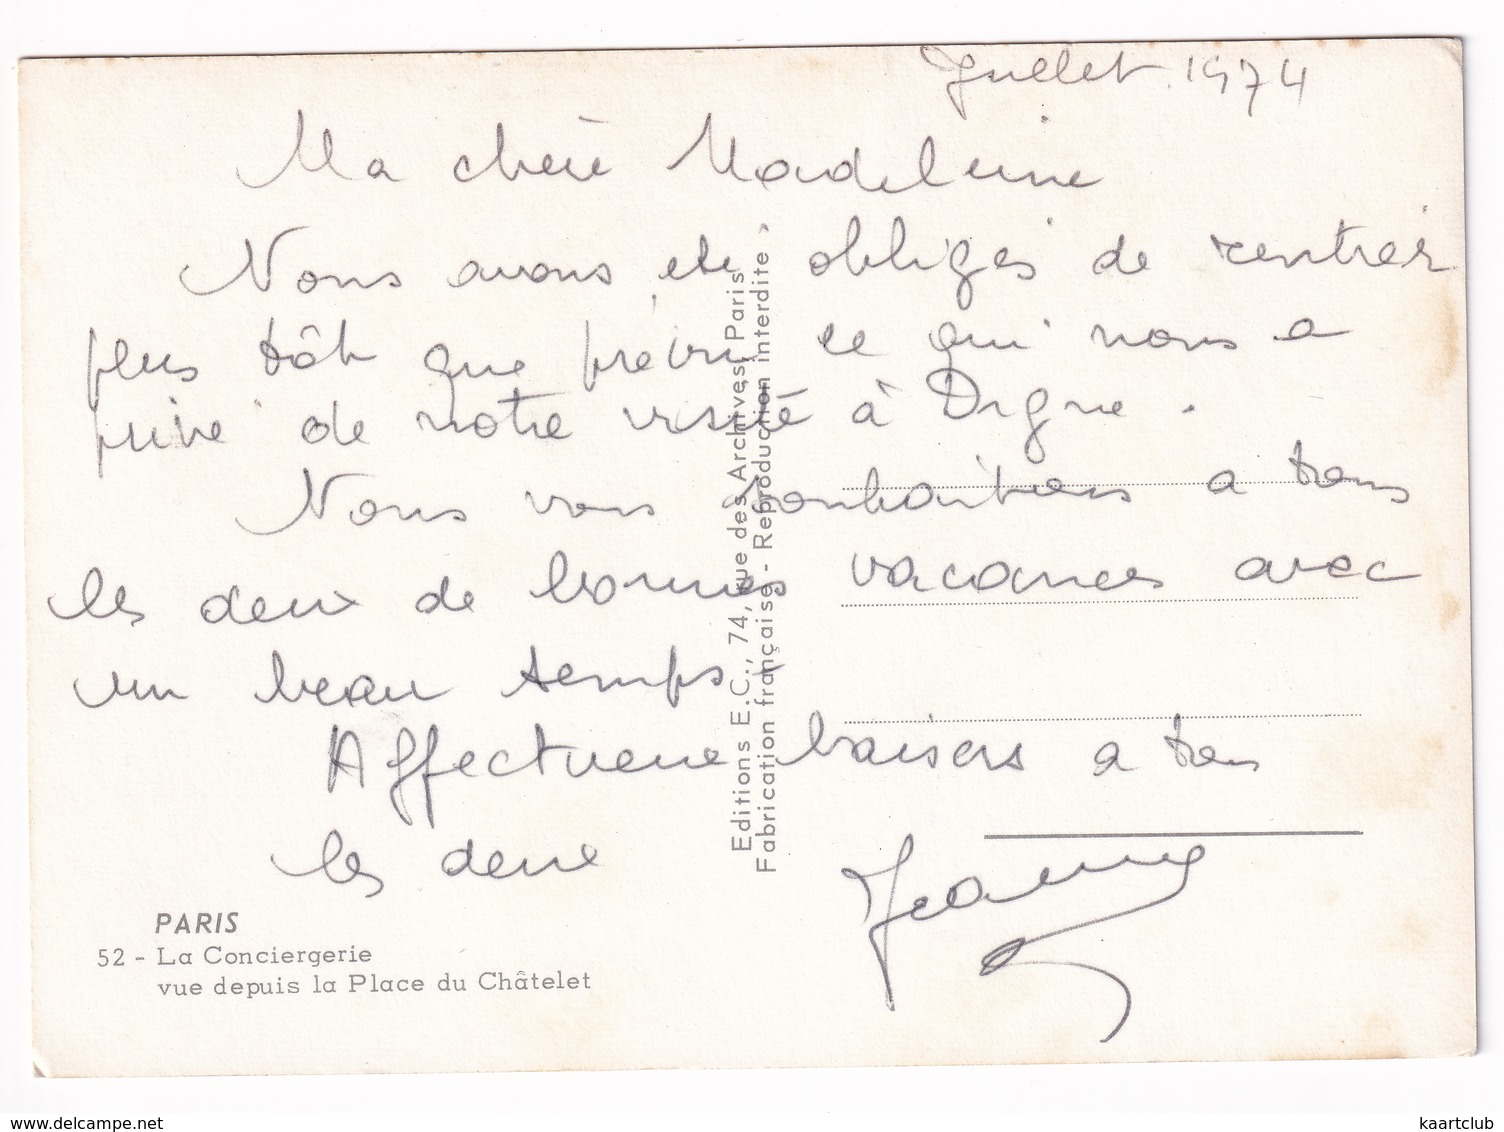 Juillet 1974
Ma chère Madeleine
Nous avons été obligés de rentrer
plus tôt que prévu ce qui nous a
privé de notre visite à Digne.
Nous vous souhaitons a tous
les deux de bonnes vacances avec
un beau temps.
Affectueux baisers a tous
les deux
Jeanne
Editions E.C., 74, rue des Archives, Paris
Fabrication française - Reproduction interdite
PARIS
52 - La Conciergerie
vue depuis la Place du Châtelet
kaartclub